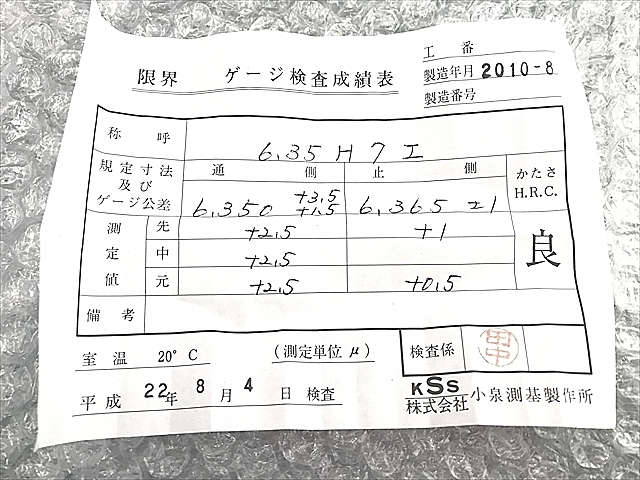 工番
限界 ゲージ検査成績表
製造年月 2010-8
製造番号
称呼 6.35 H7 工
規定寸法及びゲージ公差 通側 止側 かたさ H.R.C.
6.350 +3.5 +1.5 6.365 ±1
測定値 先 +2.5 +1 良
中 +2.5
元 +2.5 +0.5
備考
室温 20°C (測定単位 μ) 検査係 田中
平成 22年 8月 4日 検査
KSS
株式会社 小泉測基製作所